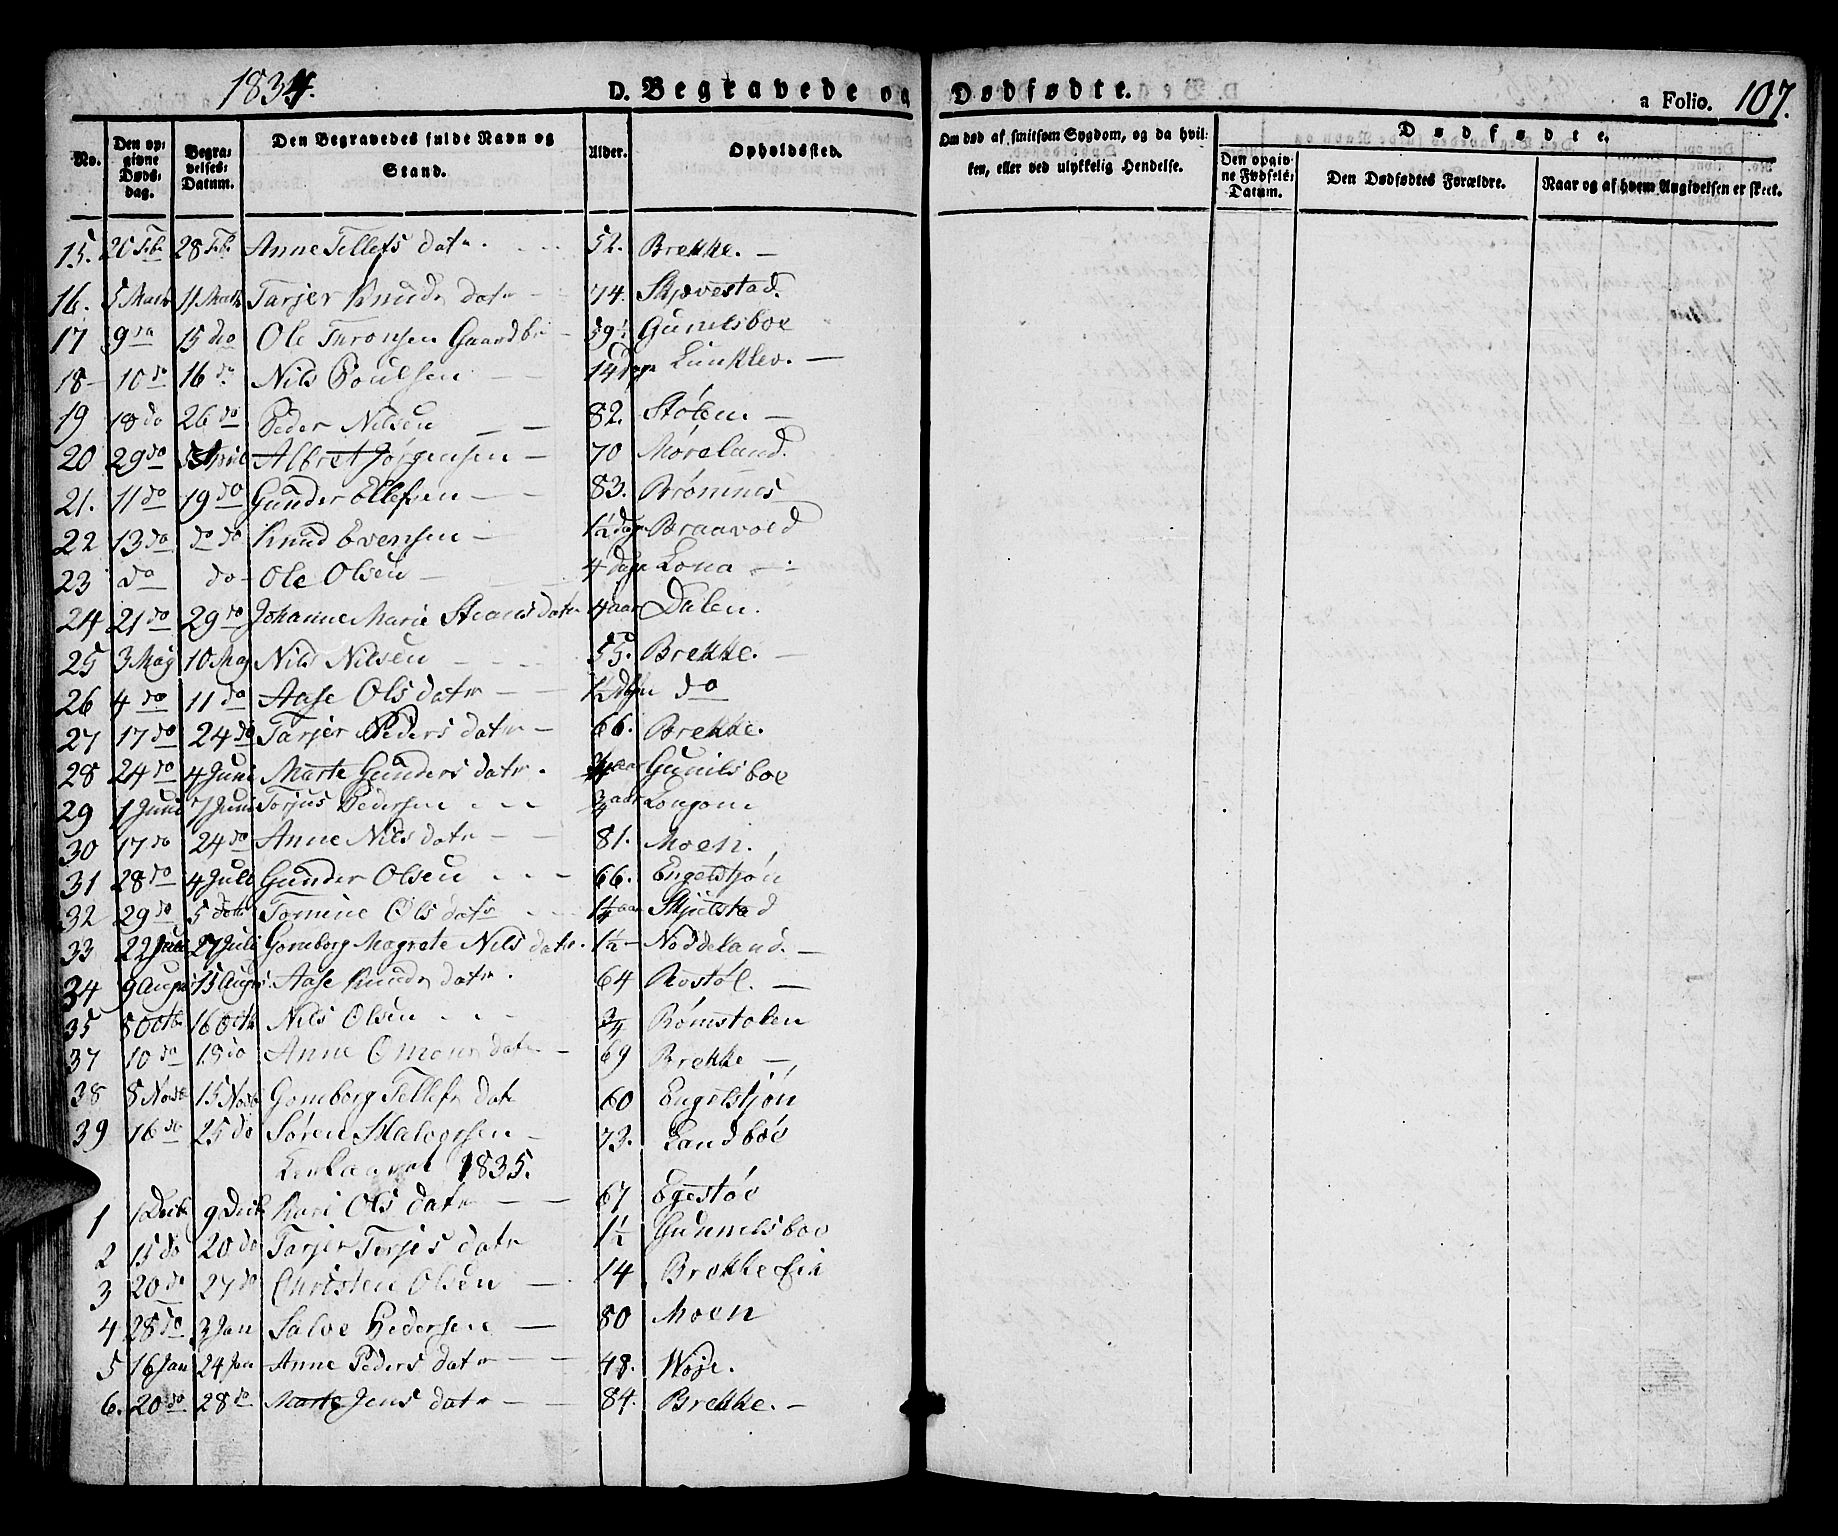 1834.
D. Begravede og Dødfødte.
a Folio. 107.
No.
Den opgivne Døds-dag.
Begravelses-Datum.
Den Begravedes fulde Navn og Stand.
Alder.
Opholdssted.
Om død af smitsom Sygdom, og da hvilken, eller ved ulykkelig Hendelse.
Dødfødte.
Den opgivne Fødsels-Datum.
Den Dødfødtes Forældre.
Naar og af hvem Angivelsen er skeet.
15. 20 Feb 28 Feb Anne Tellefs datr 52. Brekke. —
16. 5 Marts 11 Marts Tarjer Knuds datr — 74. Skjævestad.
17 9 do 15 do Ole Teronsen 59½ Gunelsboe
18 — 10 do 16 do Nils Poulsen — 14 dage Lunklev. —
19 18 do 26 do Peder Nilsen — — 82. Stølen. —
20 29 do 5 April Albret Jørgensen — 70 Møreland.
21. 11 do 19 do Gunder Ellefsen — — 83. Brømnes
22 13 do do do Knud Evensen — 1½ dage Braavold
23 do do — Ole Olsen — 4 dage Lona —
24 21 do 29 do Johanne Marie datr 4 aar Dalen.
25 3 May 10 May Nils Nilsen — 55. Brekke. —
26 4 do 11 do Aase Ols datr — — ½ do
27 17 do 24 do Tarjer Peders datr — 66. Brekke.
28 24 do 4 Juni Marte Gunders datr. aar Gunilsboe
29 1 Juni 7 Juni Torjus Pedersen ¾ aar Longom
30 17 do 24 do Anne Nils datr — — 81. Moen.
31 28 do 4 Juli Gunder Olsen — 66. Engelstjøn
32 29 do 5 do Tomine Ols datr 1¼ aar Skjulstad
33 22 Juli 27 Juli Gomborg Magrete Nils datr. 1½ — Noddeland. —
34 9 August 15 August Aase Knuds datr. 64 Rostøl. —
35 5 Octb 16 Octb Nils Olsen ¾ Rømstolen
37 10 do 18 do Anne Omons datr — 69 Brekke —
38 8 Novb 15 Novb Gomborg Tellefs datr 60 Engelstjøn
39 16 do 25 do Søren Halvorsen — 73. Landboe
Kirkaaret 1835.
1 1 Decb 9 Decb Kari Ols datr — — 67 Egestøe
2 15 do 20 do Tarjer Terjes datr 1½ Gunnelsboe
3 20 do 27 do Christen Olsen — 14 Brekke Eie
4 28 do 3 Jan Salve Pedersen — 80 Moen
5 16 Jan 24 Jan Anne Peders datr — — 48. Woje.
6. 20 do 28 do Marte Jens datr — — 84. Brekke. —